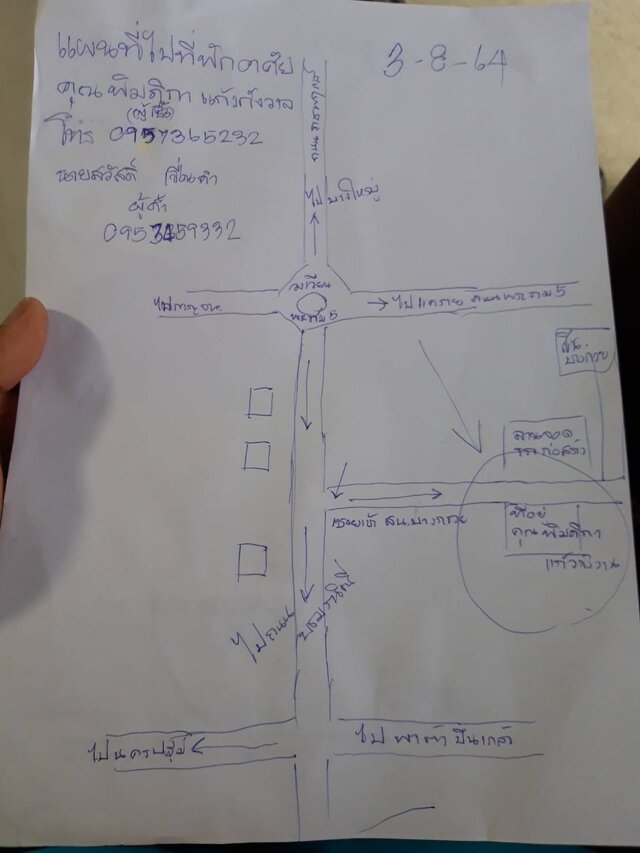 แผนที่ไปที่พักอาศัย
3-8-64
คุณ พิมดิกา แก้วกังวาล
(ผู้เช่า)
โทร 0957365232
นายสวัสดิ์
ผู้ค้ำ
ถนนราชพฤกษ์
ไปบางใหญ่
วงเวียน
พระราม 5
ไปกาญจน
ไปแคราย ถนนพระราม 5
สน.
บางกรวย
ลานจอด
ซอยเข้า สน.บางกรวย
ที่อยู่
คุณ พิมดิกา
แก้วกังวาน
ไปถนน
บรมราชชนนี
ไปนครปฐม
ไป พาต้า ปิ่นเกล้า